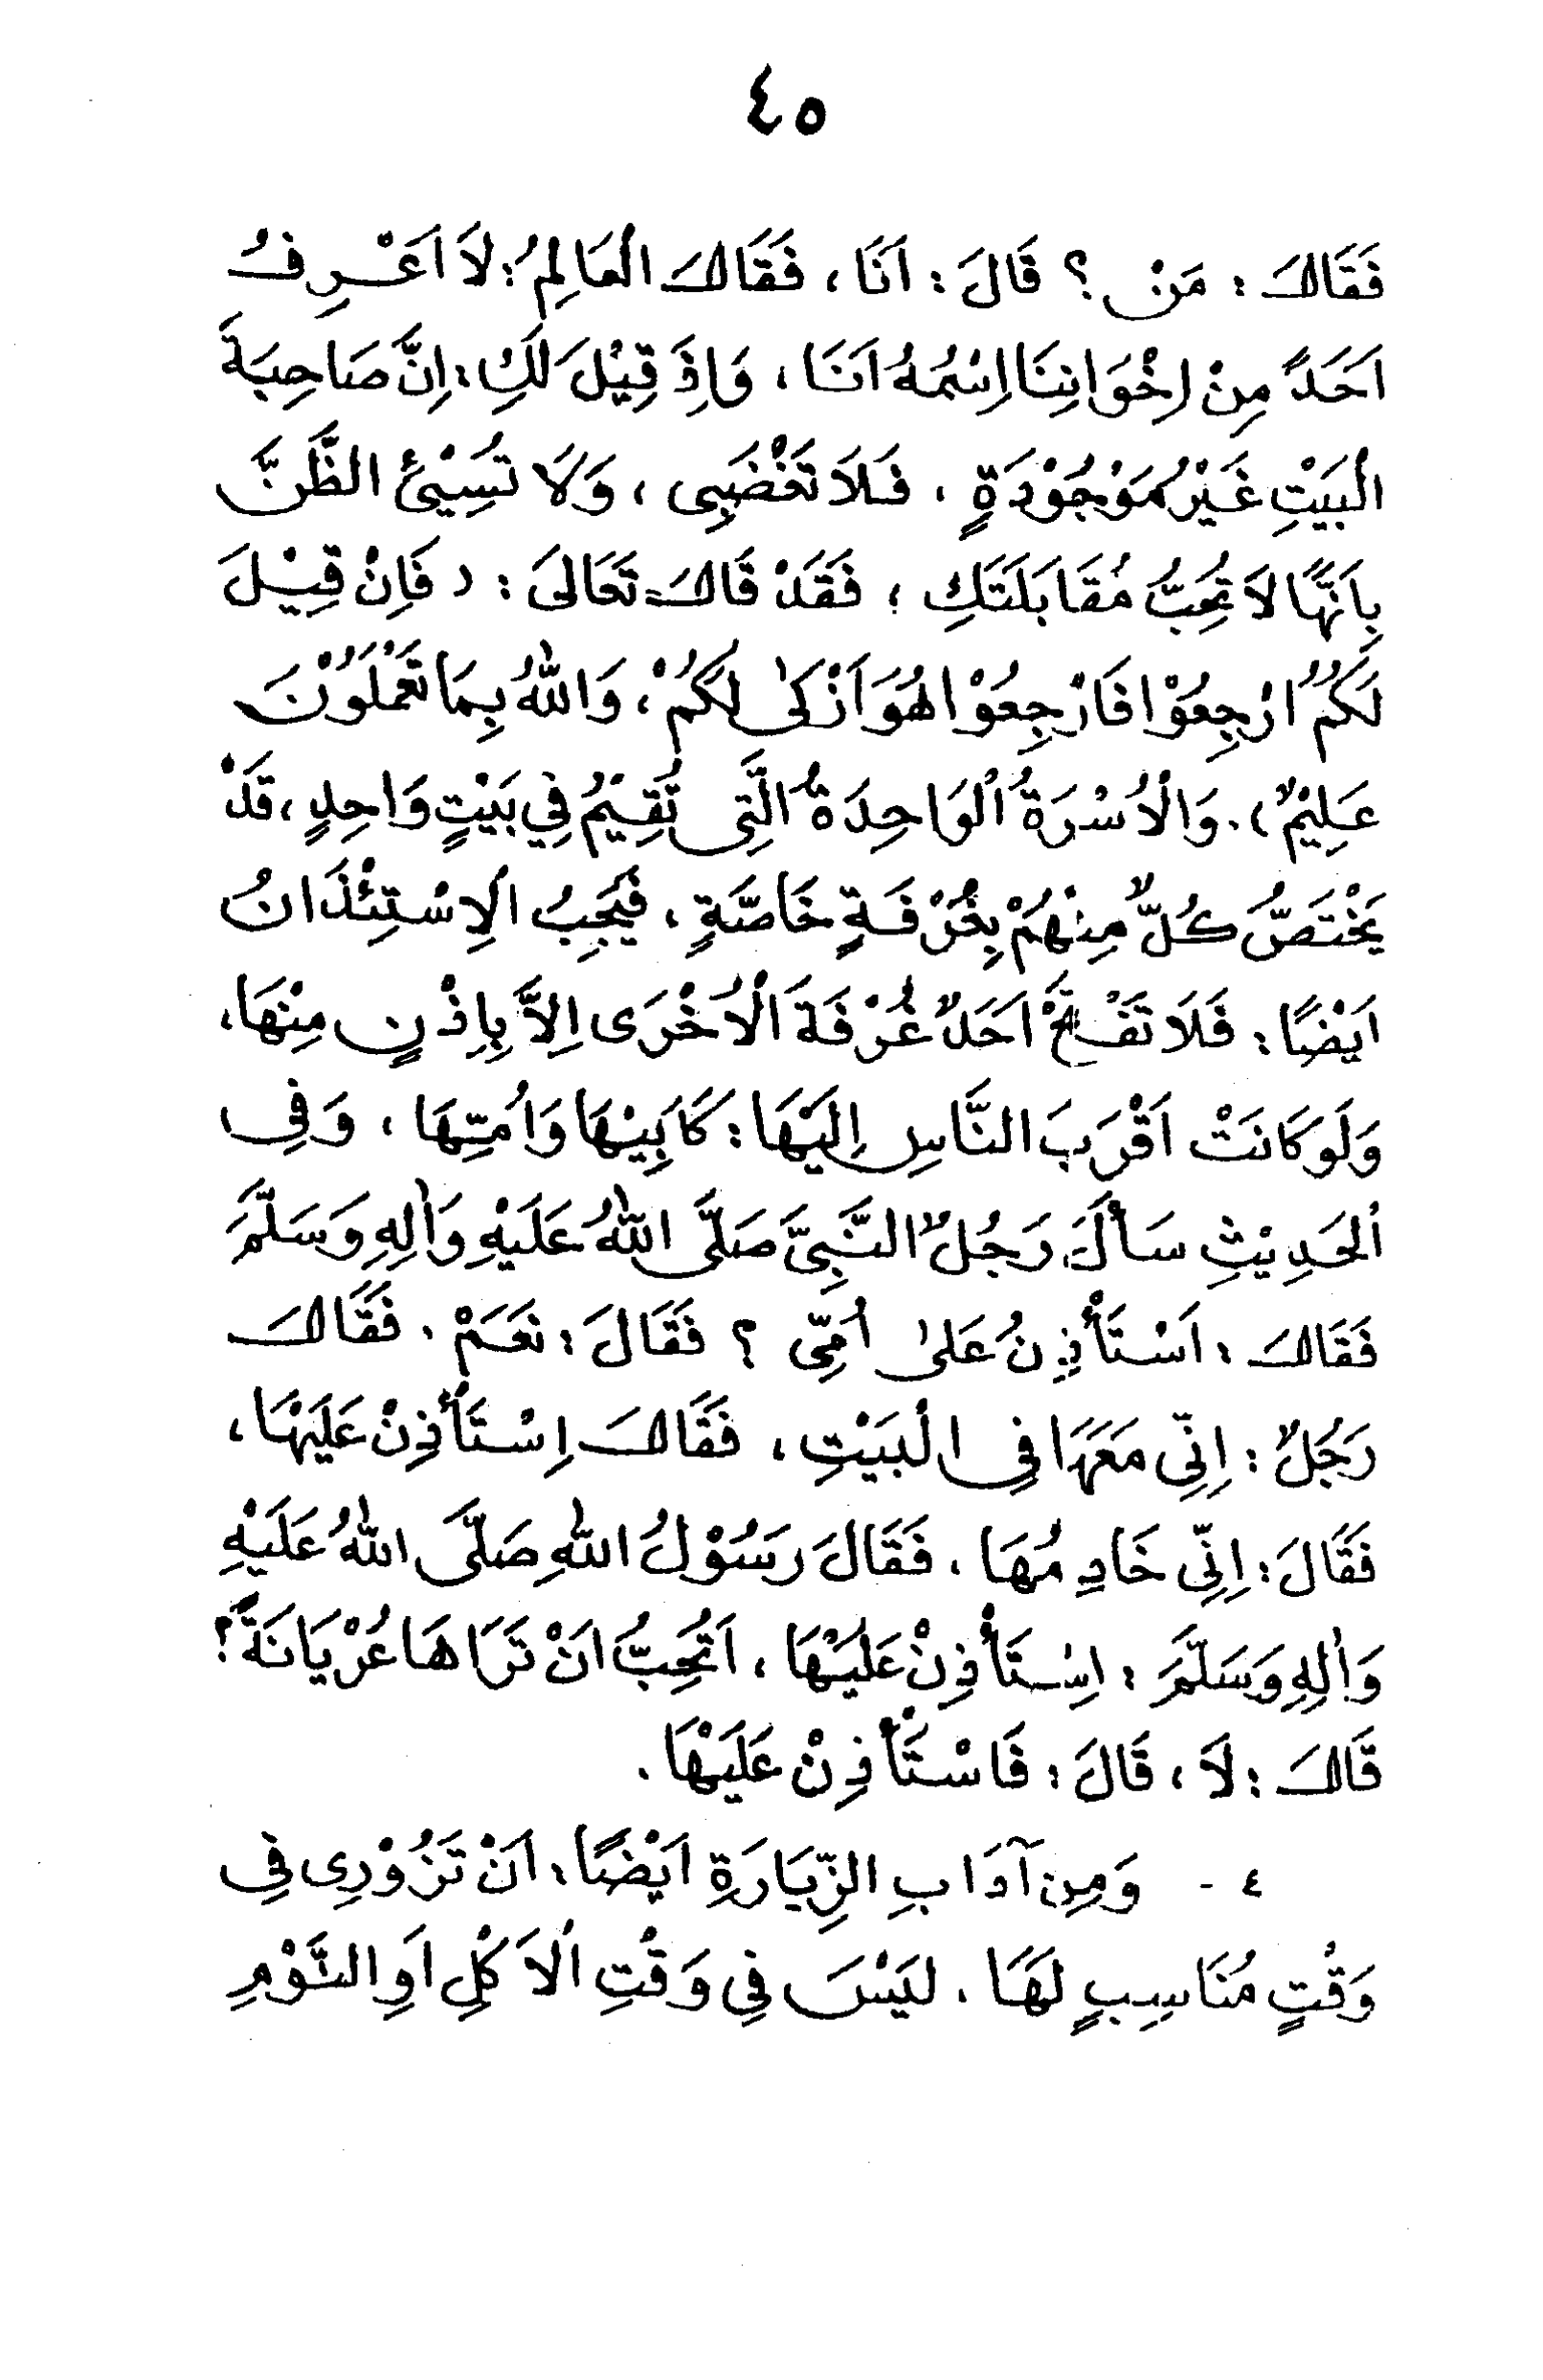 ٤٥
فَقَالَ : مَنْ ؟ قَالَ : اَنَا ، فَقَالَ الْعَالِمُ : لَا اَعْرِفُ
اَحَدً مِنْ اِخْوَانِنَا اِسْمُهُ اَنَا ، وَاِذَ قِيْلَ لَكِ : اِنَّ صَاحِبَةَ
الْبَيْتِ غَيْرُ مَوْجُوْدَةٍ ، فَلَا تَغْضَبِى ، وَلَا تُسِيْئ الظَّنَّ
بِاَنَّهَا لَا تُحِبُّ مُقَابَلَتَكِ ؛ فَقَدْ قَالَ تَعَالىَ : ( فَاِنْ قِيْلَ
لَكُمُ ارْجِعُوْا فَارْجِعُوْا هُوَ اَزْكىٰ لَكُمْ ، وَاللهُ بِمَا تَعْمَلُوْنَ
عَلِيْمٌ ) . وَالْاُسْرَةُ الْوَاحِدَةُ الَّتِى تُقِيْمُ فِي بَيْتٍ وَاحِدٍ ، قَدْ
يَخْتَصُّ كُلٌّ مِنْهُمْ بِغُرْفَةٍ خَاصَّةٍ ، فَيَجِبُ الْاِسْتِئْذَانُ
اَيْضًا : فَلَا تَفْتَحْ اَحَدٌ غُرْفَةَ الْاُخْرَى اِلاَّ بِاِذْنٍ مِنْهَا ،
وَلَوكَانَتْ اَقْرَبَ النَّاسِ اِلَيْهَا : كَاَبِيْهَا وَاُمِّهَا ، وَفِى
الْحَدِيْثِ سَأَلَ رَجُلٌ النَّبِيَّ صَلَّى اللهُ عَلَيْهِ وَاٰلِهِ وَسَلَّمَ
فَقَالَ : اَسْتَأْذِنُ عَلىٰ اُمِّى ؟ فَقَالَ : نَعَمْ . فَقَالَ
رَجُلٌ : اِنِّى مَعَهَا فِى الْبَيْتِ ، فَقَالَ اِسْتَأْذِنْ عَلَيْهَا ،
فَقَالَ : اِنِّى خَادِمُهَا ، فَقَالَ رَسُوْلُ اللهِ صَلَّى اللهُ عَلَيْهِ
وَاٰلِهِ وَسَلَّمَ : اِسْتَأْذِنْ عَلَيْهَا ، اَتُحِبُّ اَنْ تَرَاهَا عُرْيَانَةً ؟
قَالَ : لَا ، قَالَ : فَاسْتَأْذِنْ عَلَيْهَا .
٤ - وَمِن آدَابِ الزِّيَارَةِ اَيْضًا : اَنْ تَزُوْرِى فِى
وَقْتٍ مُنَاسِبٍ لَهَا ، لَيْسَ فِى وَقْتِ الْاَكْلِ اَوِ النَّوْمِ